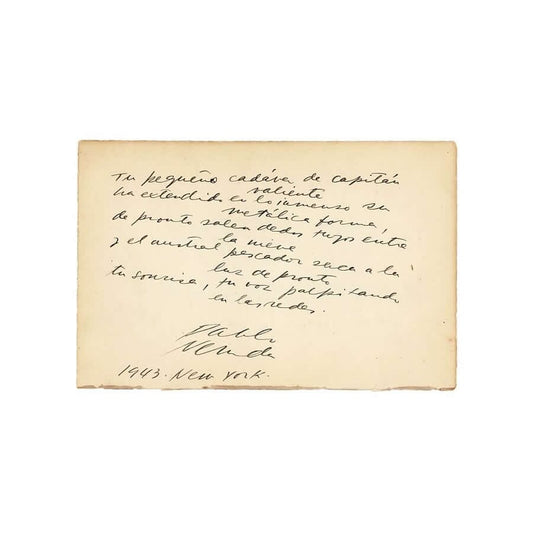 Tu pequeño cadáver de capitán
valiente
ha extendido en lo inmenso su
metálica forma,
de pronto salen dedos tuyos entre
la nieve
y el austral pescador saca a la
luz de pronto
tu sonrisa, tu voz palpitando
en las redes.
Pablo
Neruda
1943. New York.